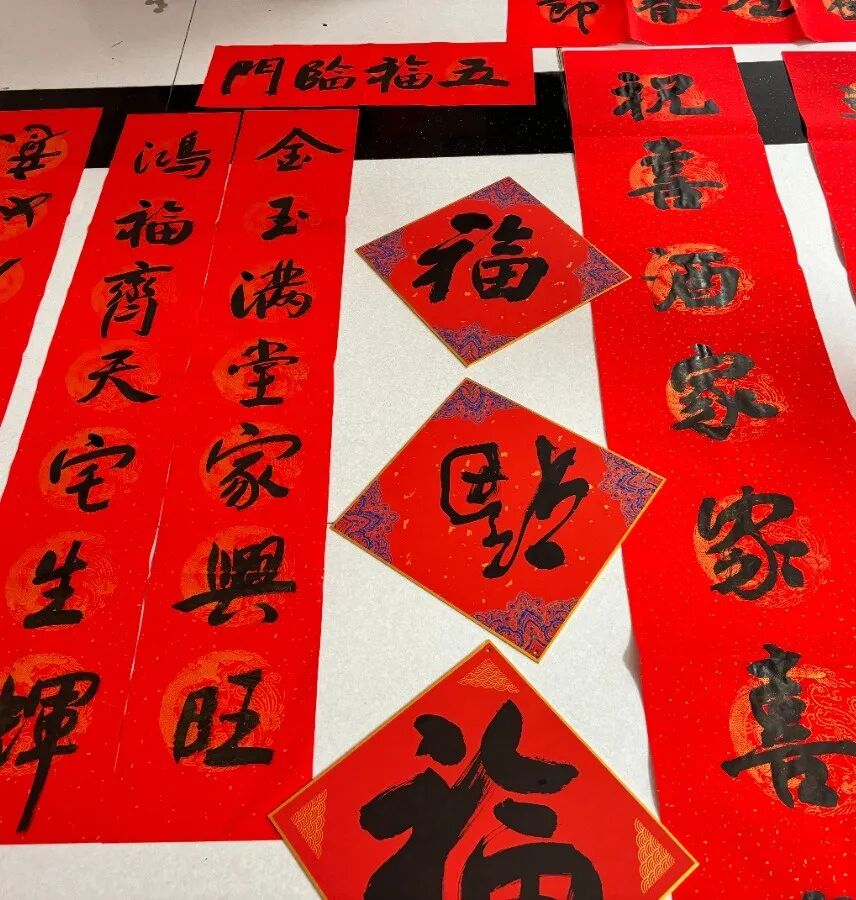 五福臨門
金玉满堂家興旺
鴻福齊天宅生輝
福
福
福
祝喜酒家家喜
春